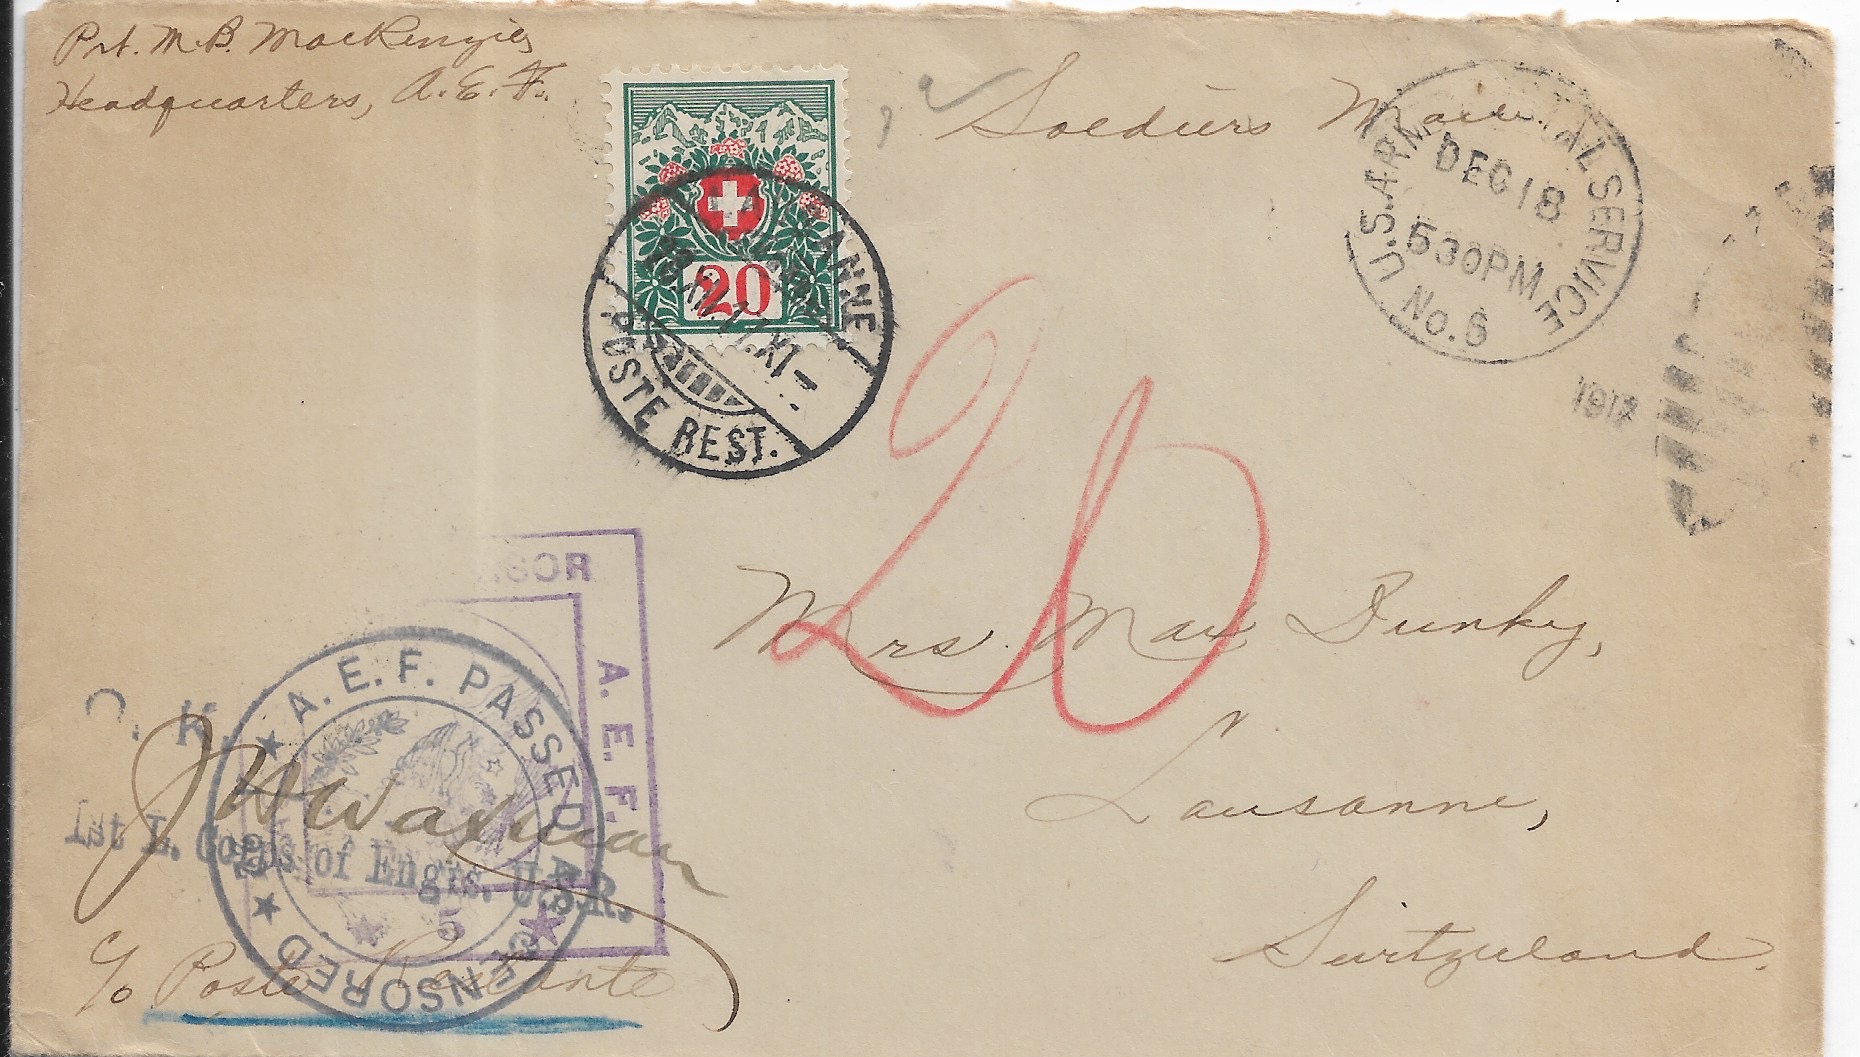 Pvt. M.B. MacKenzie,
Headquarters, A.E.F.
Soldiers Mail.
U.S. ARMY POSTAL SERVICE
DEC 18
530PM
No. 6
1917
20
LAUSANNE
POSTE REST.
20
Mrs. Max Dunky,
Lausanne,
Switzerland.
CENSOR
A. E. F.
5
A. E. F. PASSED
CENSORED
O. K.
1st L. Corps of Engrs. U.S.R.
c/o Poste Restante